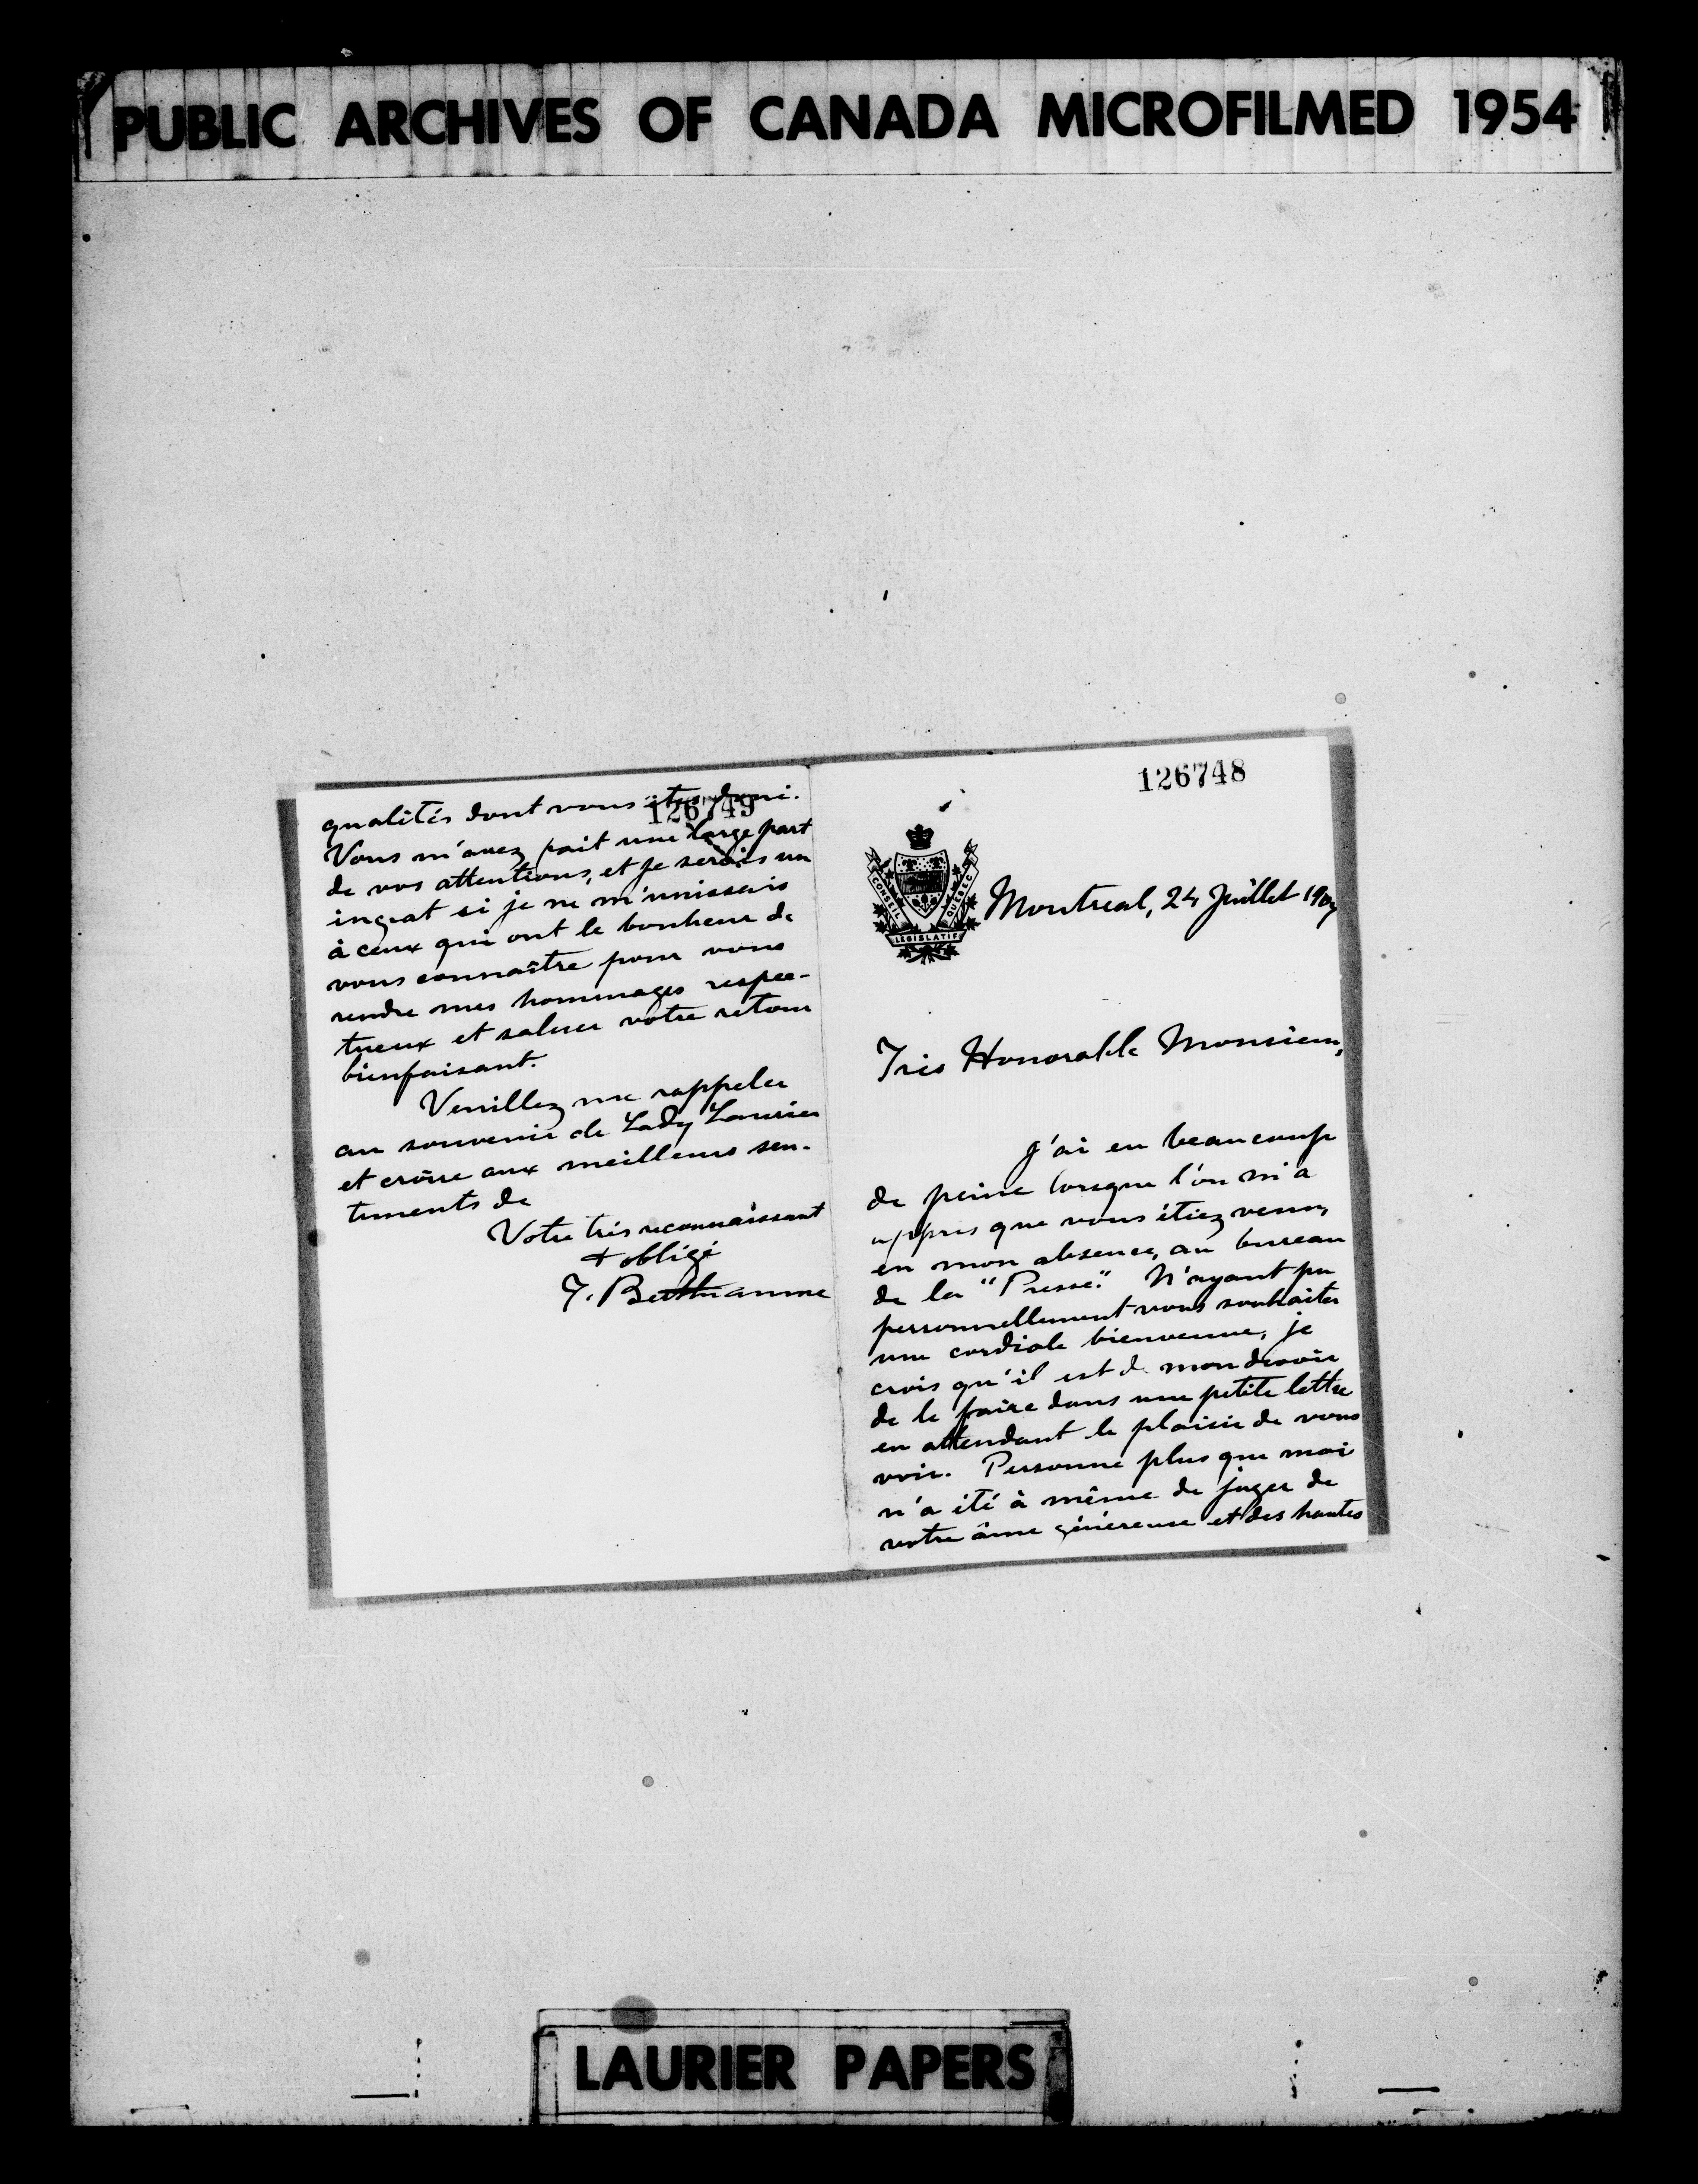 PUBLIC ARCHIVES OF CANADA MICROFILMED 1954
126748
CONSEIL LEGISLATIF QUEBEC
Montreal, 24 Juillet 1907
Très Honorable Monsieur,
J'ai eu beaucoup
de peine lorsque l'on m'a
appris que vous étiez venu,
en mon absence, au bureau
de la "Presse." N'ayant pu
personnellement vous souhaiter
une cordiale bienvenue, je
crois qu'il est de mon devoir
de le faire dans une petite lettre
en attendant le plaisir de vous
voir. Personne plus que moi
n'a été à même de juger de
votre âme généreuse et des hautes
126749
qualités dont vous êtes
Vous m'avez fait une large part
de vos attentions, et je serais un
ingrat si je ne m'unissais
à ceux qui ont le bonheur de
vous connaître pour vous
rendre mes hommages respec-
tueux et saluer votre retour
bienfaisant.
Veuillez me rappeler
au souvenir de Lady Laurier
et croire aux meilleurs sen-
timents de
Votre très reconnaissant
+ obligé
T. Berthiaume
LAURIER PAPERS